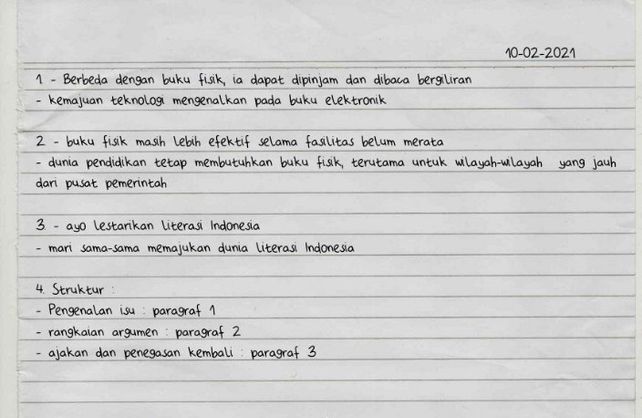 10-02-2021
1 - Berbeda dengan buku fisik, ia dapat dipinjam dan dibaca bergiliran
- kemajuan teknologi mengenalkan pada buku elektronik
2 - buku fisik masih lebih efektif selama fasilitas belum merata
- dunia pendidikan tetap membutuhkan buku fisik, terutama untuk wilayah-wilayah yang jauh
dari pusat pemerintah
3. - ayo lestarikan literasi Indonesia
- mari sama-sama memajukan dunia literasi Indonesia
4. Struktur :
- Pengenalan isu : paragraf 1
- rangkaian argumen : paragraf 2
- ajakan dan penegasan kembali : paragraf 3